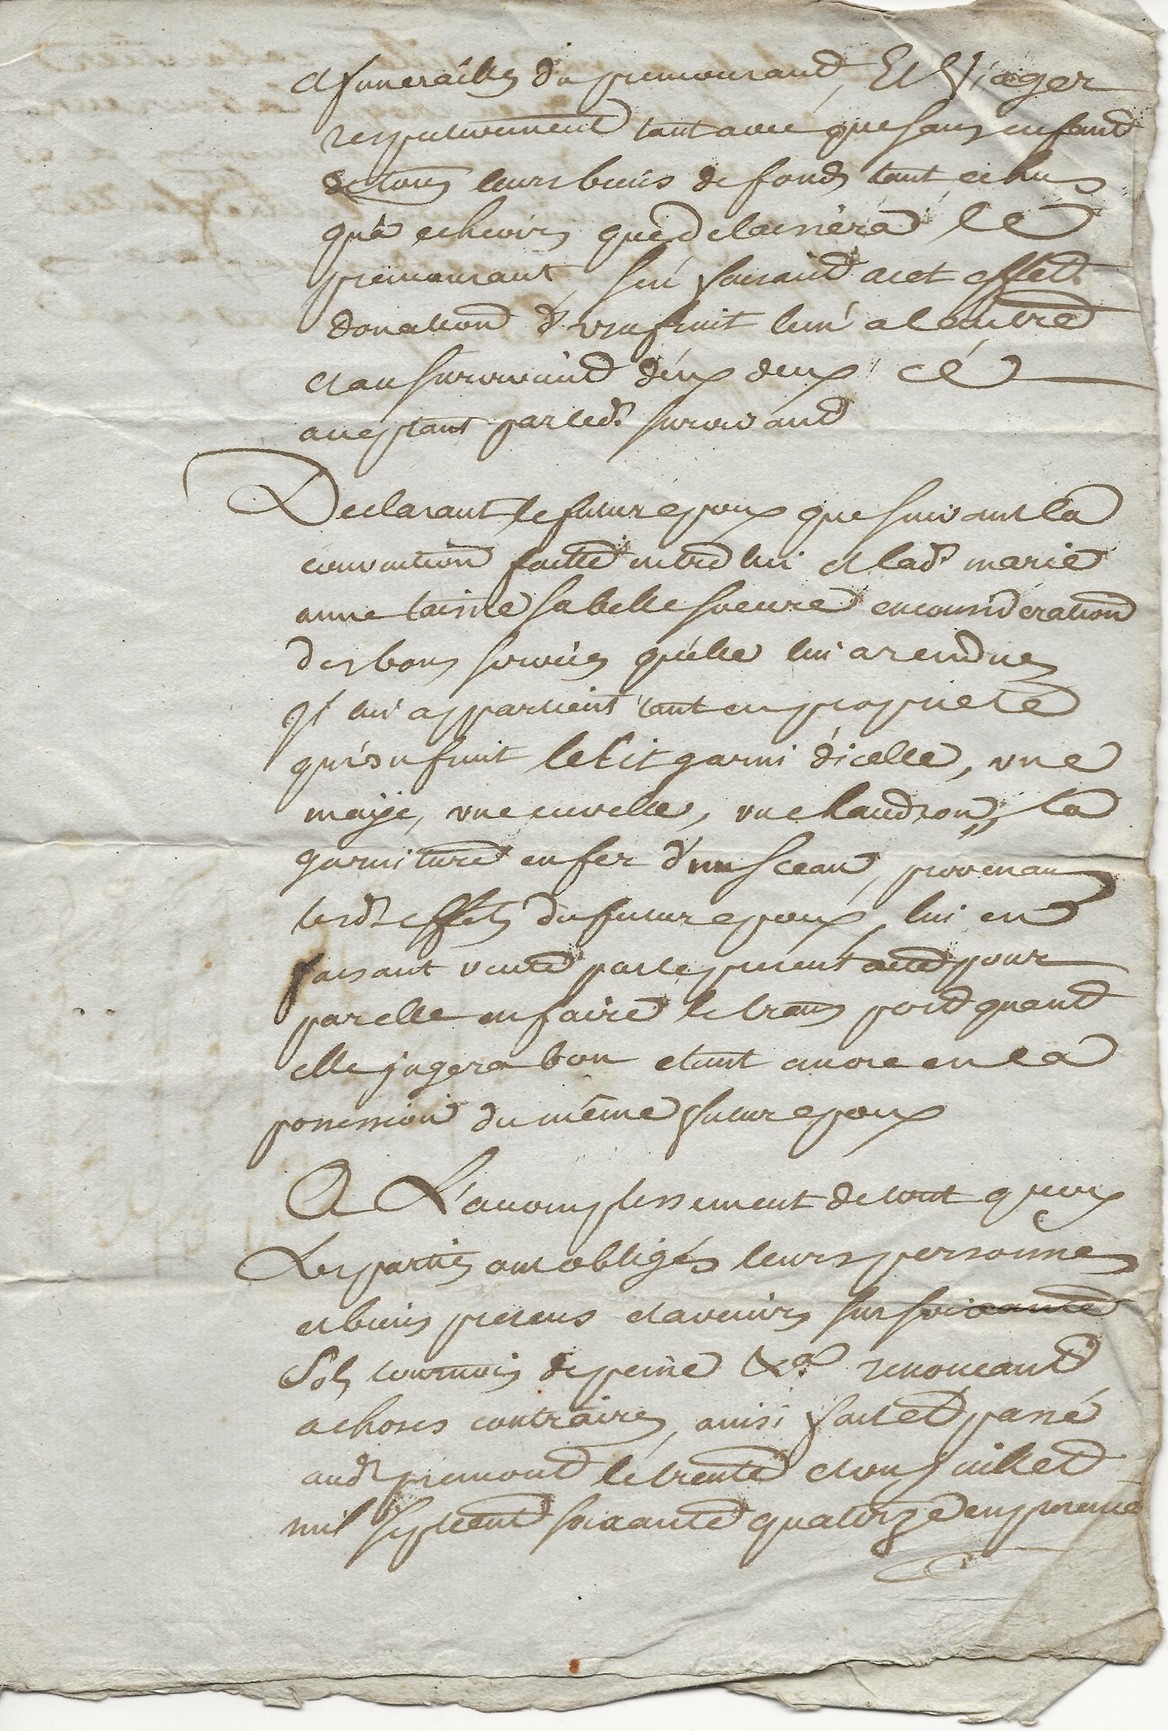 et funerailles du premourand, Et Viager
respectivement tant avec que sans enfand
de tous leurs biens de fonds tant echus
qu'a echeoirs que delaissera le
premourant, s'en faisand a cet effet
donation d'usufruit l'un a l'autre
et au survivand d'eux deux ce
acceptant par led. survivand
Declarant le futur epoux que suivant la
convention faitte entre lui et lad. marie
anne taisne sa belle soeure en consideration
des bons services qu'elle lui a rendues
Il lui appartient tant en propriete
qu'usufruit le Lit garni d'icelle, une
maye, une cuvelle, un chaudron, la
garniture en fer d'un sceau, provenant
lesd. effets du futur epoux, lui en
faisant vente par le present acte pour
par elle en faire le transpord quand
elle jugera bon etant encore en la
possession du même futur epoux
A L'accomplissement de tout quoy
Les parties ont obligés leurs personnes
et biens presens et avenirs sur soixante
Sols tournois de peine &a. renoncant
a choses contraires, ainsi fait et passé
aud. premont le trente et un juillet
mil sept cent soixante quatorze en presence